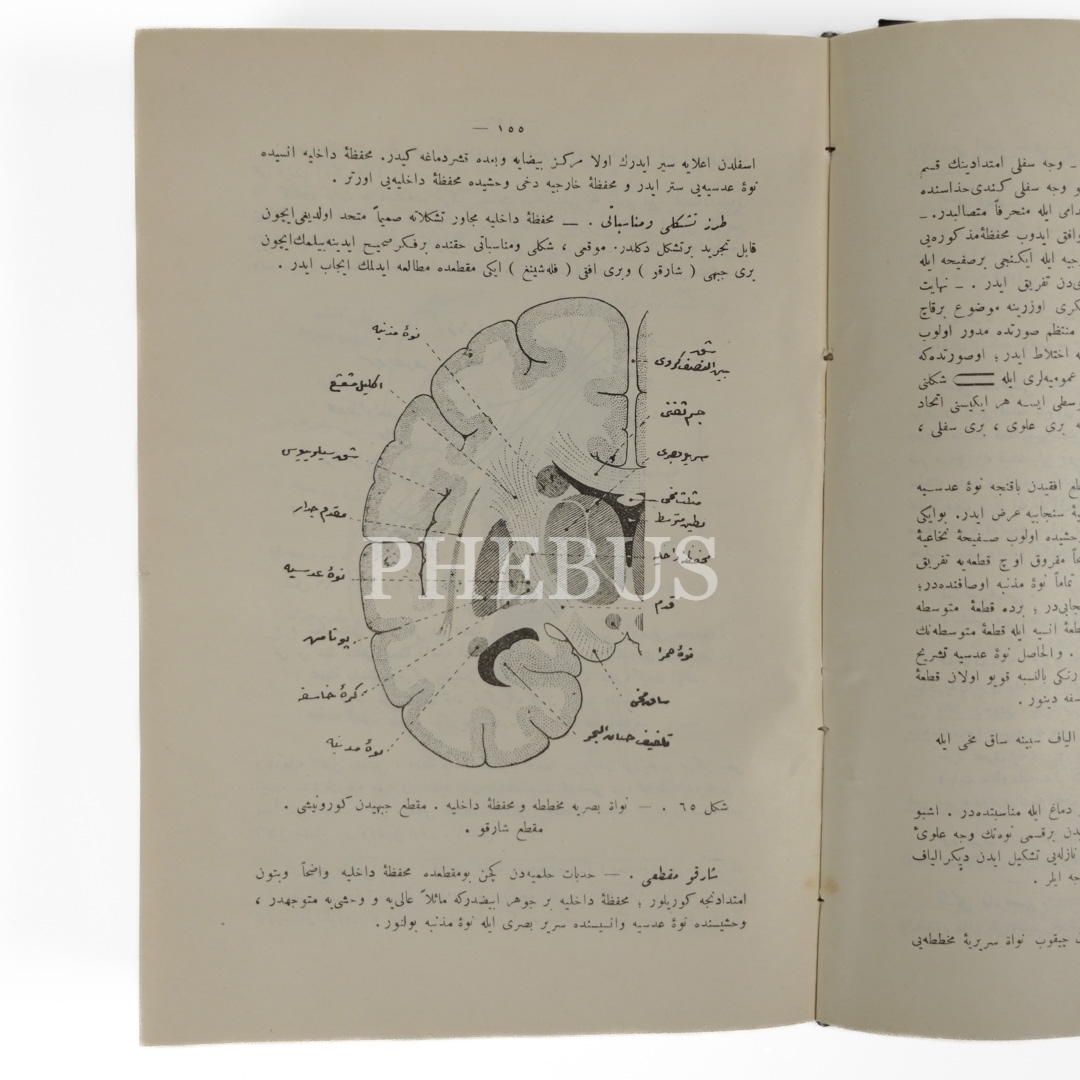 — ١٥٥
اسفلدن اعلایه سیر ایدرك اولا مركز بیضایه وبعده قشردماغه كیدر. محفظهٔ داخلیه انسیده
نوهٔ عدسیه‌یی ستر ایدر و محفظهٔ خارجیه دخی وحشیده محفظهٔ داخلیه‌یی اورتر .
طرز تشكلی ومناسباتی . — محفظهٔ داخلیه مجاور تشكلاته صمیماً متحد اولدیغی‌ایچون
قابل تجرید برتشكل دكلدر. موقعی ، شكلی ومناسباتی حقنده برفكر صحیح ایدینه‌بیلمك‌ایچون
بری جبهی ( شارقو ) وبری افقی ( فله‌شینغ ) ایكی مقطعده مطالعه ایدلمك ایجاب ایدر .
شق
بین النصف كروی
نوهٔ مذنبه
اكلیل مشعع
جسم ثفنی
شق سیلویوس
سریر بصری
مثلث مخی
مقدم جدار
بطین متوسط
محفظهٔ داخلیه
نوهٔ عدسیه
PHEBUS
قدم
پوتامن
نوهٔ حمرا
كرهٔ خاسفه
ساق مخی
نوهٔ مذنبه
تلفیف حصان البحر
شكل ٦٥ . — نواة بصریه مخططه و محفظهٔ داخلیه . مقطع جبهیدن كورونیشی .
مقطع شارقو .
شارقو مقطعی . — حدبات حلمیه‌دن كچن بومقطعده محفظهٔ داخلیه واضحاً وبتون
امتدادنجه كوریلور ؛ محفظهٔ داخلیه بر جوهر ابیضدركه مائلاً عالی‌یه و وحشی‌یه متوجهدر ،
وحشیسنده نوهٔ عدسیه وانسیسنده سریر بصری ایله نوهٔ مذنبه بولنور .
ـ وجه سفلی امتدادینك قسم
و وجه سفلی كندی‌حذاسنده
دامی ایله منحرفاً متصالبدر. ـ
وافق ایدوب محفظهٔ‌مذكوره‌یی
جیه ایله ایكنجی برصفیحه ایله
دن تفریق ایدر . ـ نهایت
كری اوزرینه موضوع برقاچ
منتظم صورتده مدور اولوب
ه اختلاط ایدر ؛ اوصورتده‌كه
عمومیه‌لری ایله شكلنی
وسطی ایسه هر ایكیسنی اتحاد
ه بری علوی ، بری سفلی ،
طع افقیدن باقنجه نوهٔ عدسیه
هٔ سنجابیه عرض ایدر. بوایكی
وحشیده اولوب صفیحهٔ نخاعیهٔ
اً مفروق اوچ قطعه‌یه تفریق
تماماً نوهٔ مذنبه اوصافنده‌در؛
جابی‌در ؛ برده قطعهٔ متوسطه
طعهٔ انسیه ایله قطعهٔ متوسطه‌نك
. والحاصل نوهٔ عدسیه تشریح
رنكی بالنسبه قویو اولان قطعهٔ
سفه دینور .
الیاف سبینه ساق مخی ایله
دماغ ایله مناسبتده‌در . اشبو
یدن برقسمی نوه‌نك وجه علوی
نازله‌یی تشكیل ایدن دیكر الیاف
جه ایلر .
چیقوب نواة سریریهٔ مخططه‌یی